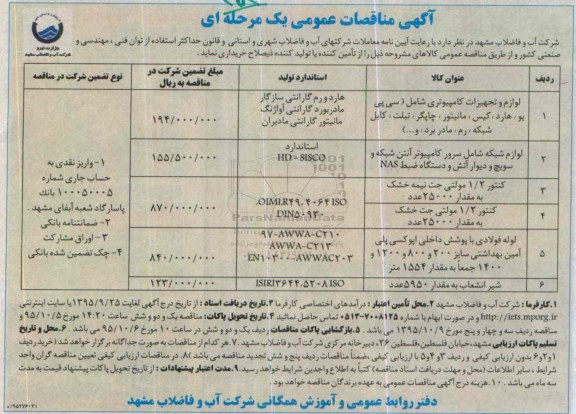 آگهی مناقصات عمومی یک مرحله ای
شرکت آب و فاضلاب مشهد در نظر دارد با رعایت آیین نامه معاملات شرکتهای آب و فاضلاب شهری و استانی و قانون حداکثر استفاده از توان فنی ، مهندسی و
صنعتی کشور و از طریق مناقصه عمومی کالاهای مشروحه ذیل را از تأمین کننده یا تولید کننده ذیصلاح خریداری نماید .
ردیف
عنوان کالا
استاندارد تولید
مبلغ تضمین شرکت در
مناقصه به ریال
نوع تضمین شرکت در مناقصه
۱
لوازم و تجهیزات کامپیوتری شامل ( سی پی
یو ، هارد ، کیس ، مانیتور ، چاپگر ، تبلت ، کابل
شبکه ، رم ، مادر برد ، و...)
هارد و رم گارانتی سازگار
مادربورد گارانتی آواژنگ
مانیتور گارانتی مادیران
۱۹۴/۰۰۰/۰۰۰
۲
لوازم شبکه شامل سرور کامپیوتر آنتن شبکه و
سویچ و دیوار آتش و دستگاه ضبط NAS
استاندارد
HD = SISCO
۱۵۵/۵۰۰/۰۰۰
۳
کنتور ۱/۲ مولتی جت نیمه خشک
به مقدار ۲۵۰۰۰عدد
۴
کنتور ۱/۲ مولتی جت خشک
به مقدار ۲۵۰۰۰عدد
OIMLR۴۹،۴۰۶۴ ISO،
DIN۵۰۹۳۰
۸۷۰/۰۰۰/۰۰۰
۵
لوله فولادی با پوشش داخلی اپوکسی پلی
آمین بهداشتی سایز ۲۰۰ و ۸۰۰ و ۱۲۰۰ و
۱۴۰۰ جمعاً به مقدار ۱۵۵۴ متر
۹۷-AWWA-C۲۱۰
AWWA-C۲۱۳
EN۱۰۳۰۰-AWWAC۲۰۳
۸۴۰/۰۰۰/۰۰۰
۶
شیر انشعاب به مقدار ۵۹۵۰عدد
ISIRI۳۶۴۴،۵۲۰۸ ISO
۱۲۳/۰۰۰/۰۰۰
۱- واریز نقدی به
حساب جاری شماره
۱۰۰۰۵۰۰۰۵ بانک
پاسارگاد شعبه آبفای مشهد .
۲- ضمانتنامه بانکی
۳- اوراق مشارکت
۴- چک تضمین شده بانکی
۱.کارفرما : شرکت آب و فاضلاب مشهد ۲.محل تأمین اعتبار : درآمدهای اختصاصی کارفرما ۳.تاریخ دریافت اسناد : از تاریخ درج آگهی لغایت ۱۳۹۵/۹/۲۵ با سایت اینترنتی
http://iets.mporg.ir و در صورت ابهام با شماره ۷۰۰۸۱۲۵-۰۵۱۳ تماس حاصل نمائید ۴.تاریخ تحویل پاکات: مناقصه یک و دو و شش ساعت ۱۴:۲۰ مورخ ۹۵/۱۰/۵ و
مناقصه ردیف سه و چهار و پنج مورخ ۱۳۹۵/۱۰/۹ می باشد . ۵.بازگشایی پاکات مناقصات ردیف یک و دو و شش در ساعت ۱۰ مورخ ۹۵/۱۰/۶ می باشد . ۶.محل و تاریخ
تسلیم پاکات ارزیابی مشهد،خیابان فلسطین-فلسطین ۲۶، دبیرخانه مرکزی شرکت آب و فاضلاب مشهد .۷. هر کدام از مناقصات به صورت جداگانه برگزار خواهد شد.(خرید ردیف
۱و۲و۶ بدون ارزیابی کیفی و ردیف ۳و۴و۵ با ارزیابی کیفی ،ضمناً مناقصات ردیف پنج و شش تجدید مناقصه می باشد )۸. در مناقصات ارزیابی کیفی تعیین مناقصه گران واجد
شرایط ، سایر اطلاعات (محل و مهلت دریافت اسناد مناقصه) کتباً به اطلاع واجدین شرایط خواهد رسید.۹.مدت اعتبار پیشنهادات : از تاریخ تحویل پاکات پیشنهاد قیمت به مدت
سه ماه می باشد . ۱۰. هزینه درج آگهی مناقصات عمومی به عهده برندگان مناقصه خواهد بود .
دفتر روابط عمومی و آموزش همگانی شرکت آب و فاضلاب مشهد